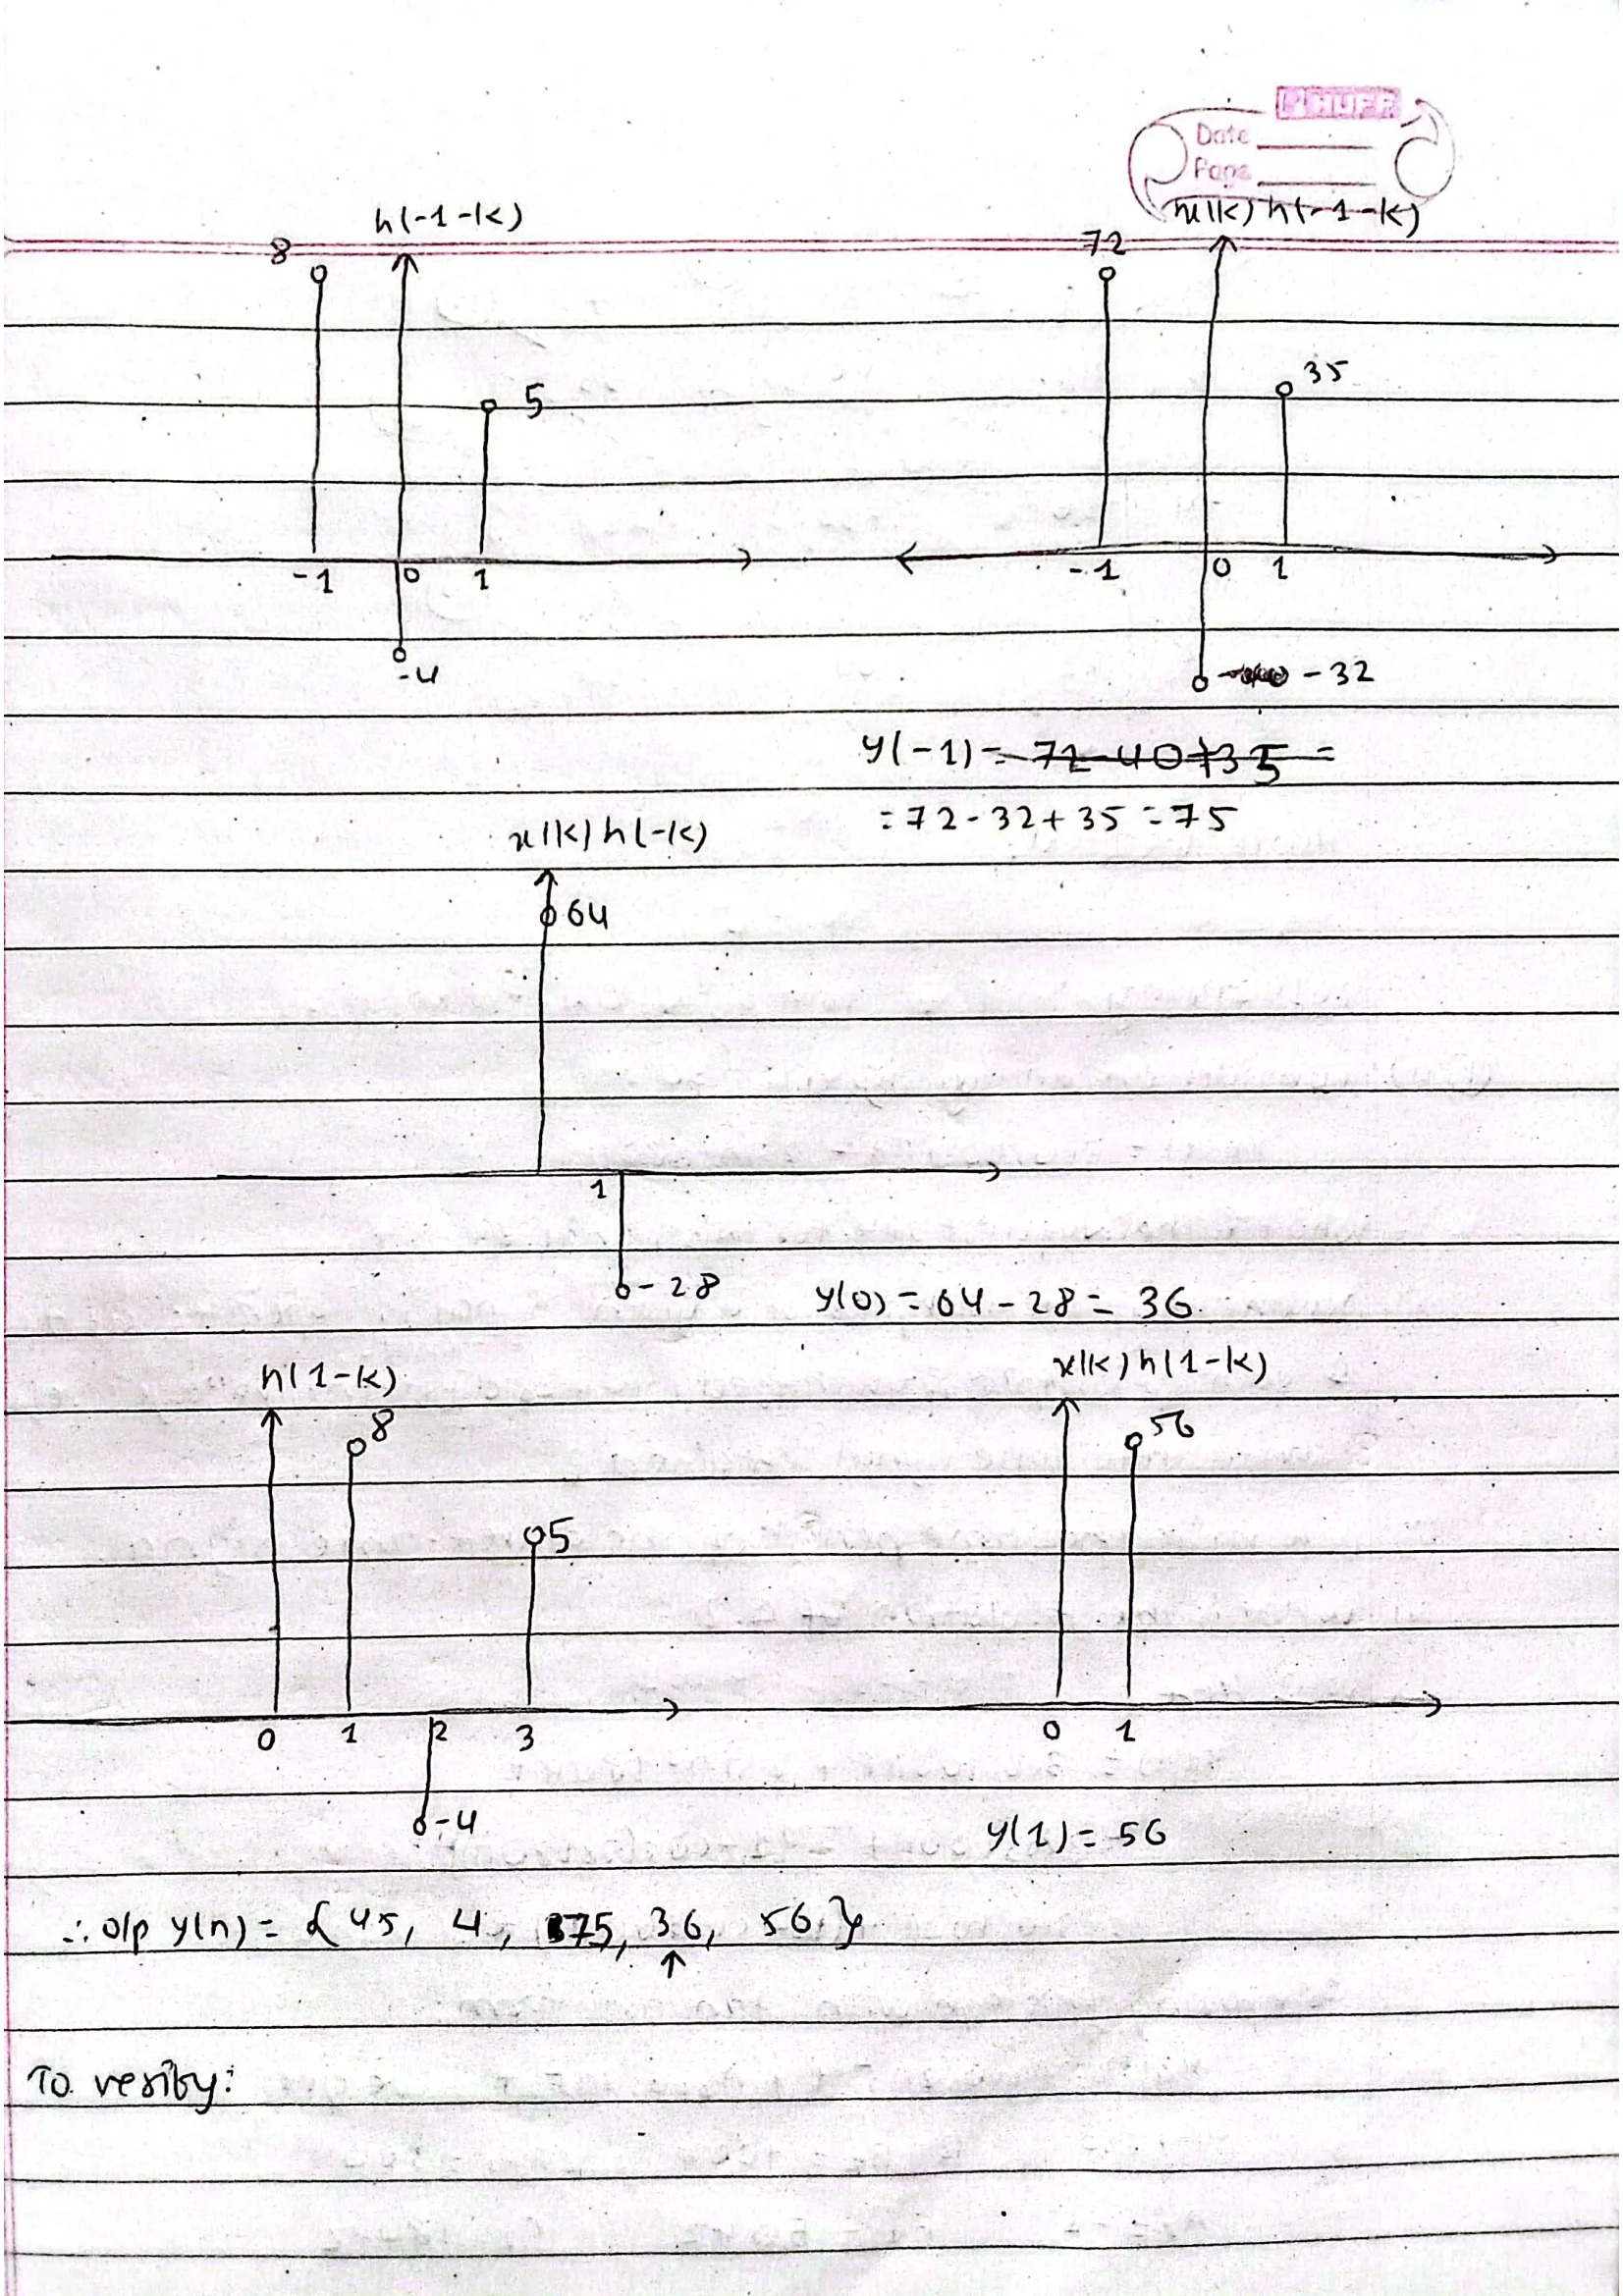 Date
Page
h(-1-k)
x(k) h(-1-k)
8
72
5
35
-1 0 1
-1 0 1
-4
-32
y(-1) = 72-40+35 =
= 72-32+35 = 75
x(k) h(-k)
64
1
-28
y(0) = 64-28 = 36
h(1-k)
x(k) h(1-k)
8
56
5
0 1 2 3
0 1
-4
y(1) = 56
∴ o/p y(n) = { 45, 4, 75, 36, 56 }
↑
To verify: